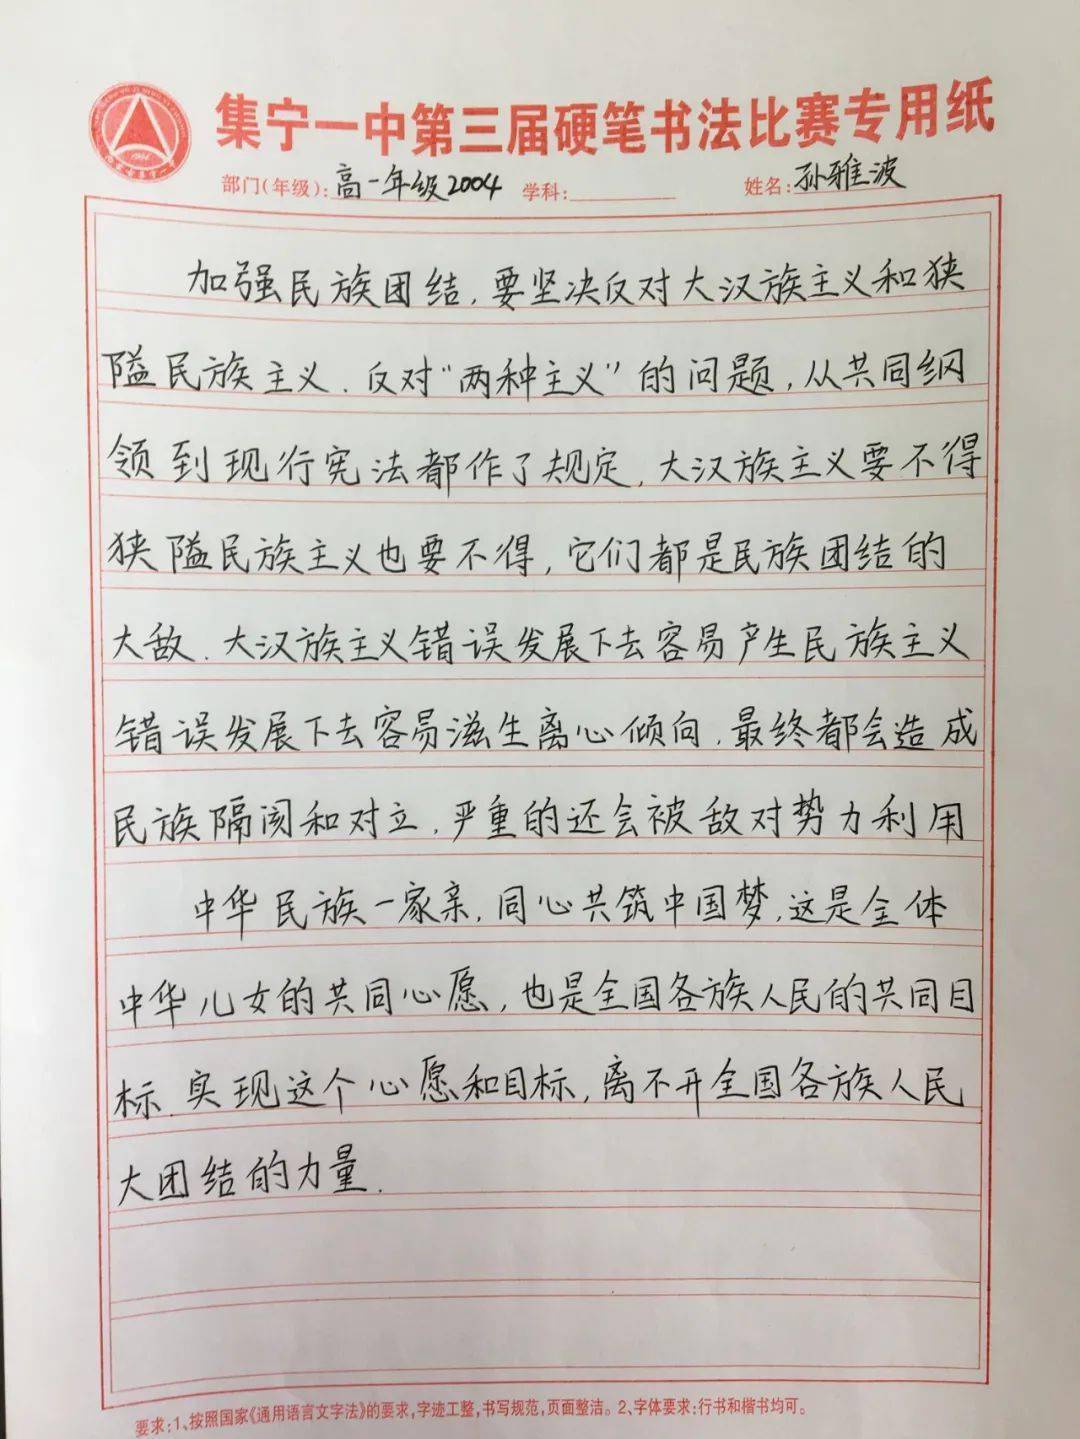 集宁一中第三届硬笔书法比赛专用纸
部门(年级):高一年级2004 学科: 姓名:孙雅波
加强民族团结,要坚决反对大汉族主义和狭
隘民族主义.反对“两种主义”的问题,从共同纲
领到现行宪法都作了规定,大汉族主义要不得
狭隘民族主义也要不得,它们都是民族团结的
大敌.大汉族主义错误发展下去容易产生民族主义
错误发展下去容易滋生离心倾向,最终都会造成
民族隔阂和对立,严重的还会被敌对势力利用
中华民族一家亲,同心共筑中国梦,这是全体
中华儿女的共同心愿,也是全国各族人民的共同目
标.实现这个心愿和目标,离不开全国各族人民
大团结的力量.
要求:1、按照国家《通用语言文字法》的要求,字迹工整,书写规范,页面整洁。2、字体要求:行书和楷书均可。